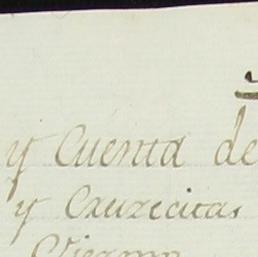 y Cuenta de
y Cruzecitas